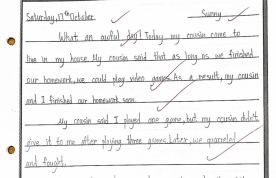 Saturday, 17th October Sunny
What an awful day! Today my cousin come to
live in my house. My cousin said that as long as we finished
our homework, we could play video games. As a result, my cousin
and I finished our homework soon.
My cousin said I played one game, but my cousin didn't
give it to me after playing three games. Later, we quarreled
and fought.